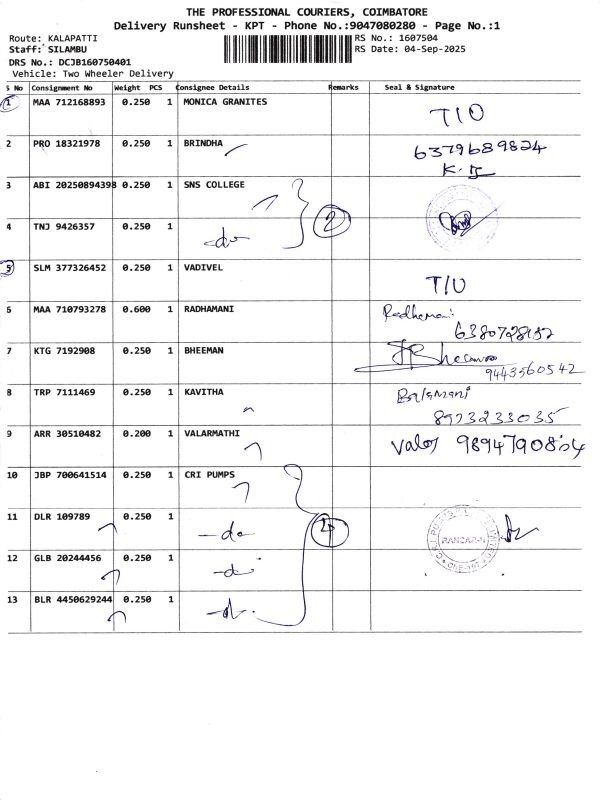 THE PROFESSIONAL COURIERS, COIMBATORE
Delivery Runsheet - KPT - Phone No.:9047080280 - Page No.:1
Route: KALAPATTI
RS No.: 1607504
Staff: SILAMBU
RS Date: 04-Sep-2025
DRS No.: DCJB160750401
Vehicle: Two Wheeler Delivery
S No Consignment No Weight PCS Consignee Details Remarks Seal & Signature
1 MAA 712168893 0.250 1 MONICA GRANITES T/O
2 PRO 18321978 0.250 1 BRINDHA 6379689824
3 ABI 20250894398 0.250 1 SNS COLLEGE
2
4 TNJ 9426357 0.250 1 -do-
5 SLM 377326452 0.250 1 VADIVEL T/O
6 MAA 710793278 0.600 1 RADHAMANI Radhamani
6380728152
7 KTG 7192908 0.250 1 BHEEMAN
9443560542
8 TRP 7111469 0.250 1 KAVITHA Balamani
8973233035
9 ARR 30510482 0.200 1 VALARMATHI Valar
10 JBP 700641514 0.250 1 CRI PUMPS
11 DLR 109789 0.250 1 -do-
4
12 GLB 20244456 0.250 1 -do-
13 BLR 4450629244 0.250 1 -do-